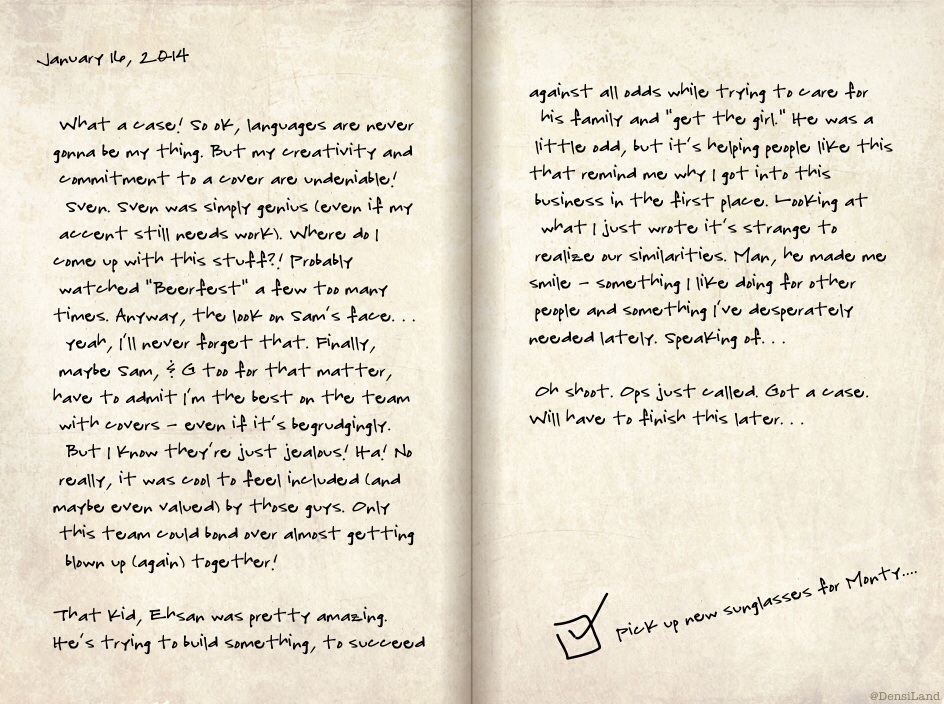 January 16, 2014
What a case! So ok, languages are never
gonna be my thing. But my creativity and
commitment to a cover are undeniable!
Sven. Sven was simply genius (even if my
accent still needs work). Where do I
come up with this stuff?! Probably
watched "Beerfest" a few too many
times. Anyway, the look on Sam's face...
yeah, I'll never forget that. Finally,
maybe Sam, & G too for that matter,
have to admit I'm the best on the team
with covers - even if it's begrudgingly.
But I know they're just jealous! Ha! No
really, it was cool to feel included (and
maybe even valued) by those guys. Only
this team could bond over almost getting
blown up (again) together!
That kid, Ehsan was pretty amazing.
He's trying to build something, to succeed
against all odds while trying to care for
his family and "get the girl." He was a
little odd, but it's helping people like this
that remind me why I got into this
business in the first place. Looking at
what I just wrote it's strange to
realize our similarities. Man, he made me
smile - something I like doing for other
people and something I've desperately
needed lately. Speaking of...
Oh shoot. Ops just called. Got a case.
Will have to finish this later...
pick up new sunglasses for Monty....
@DensiLand